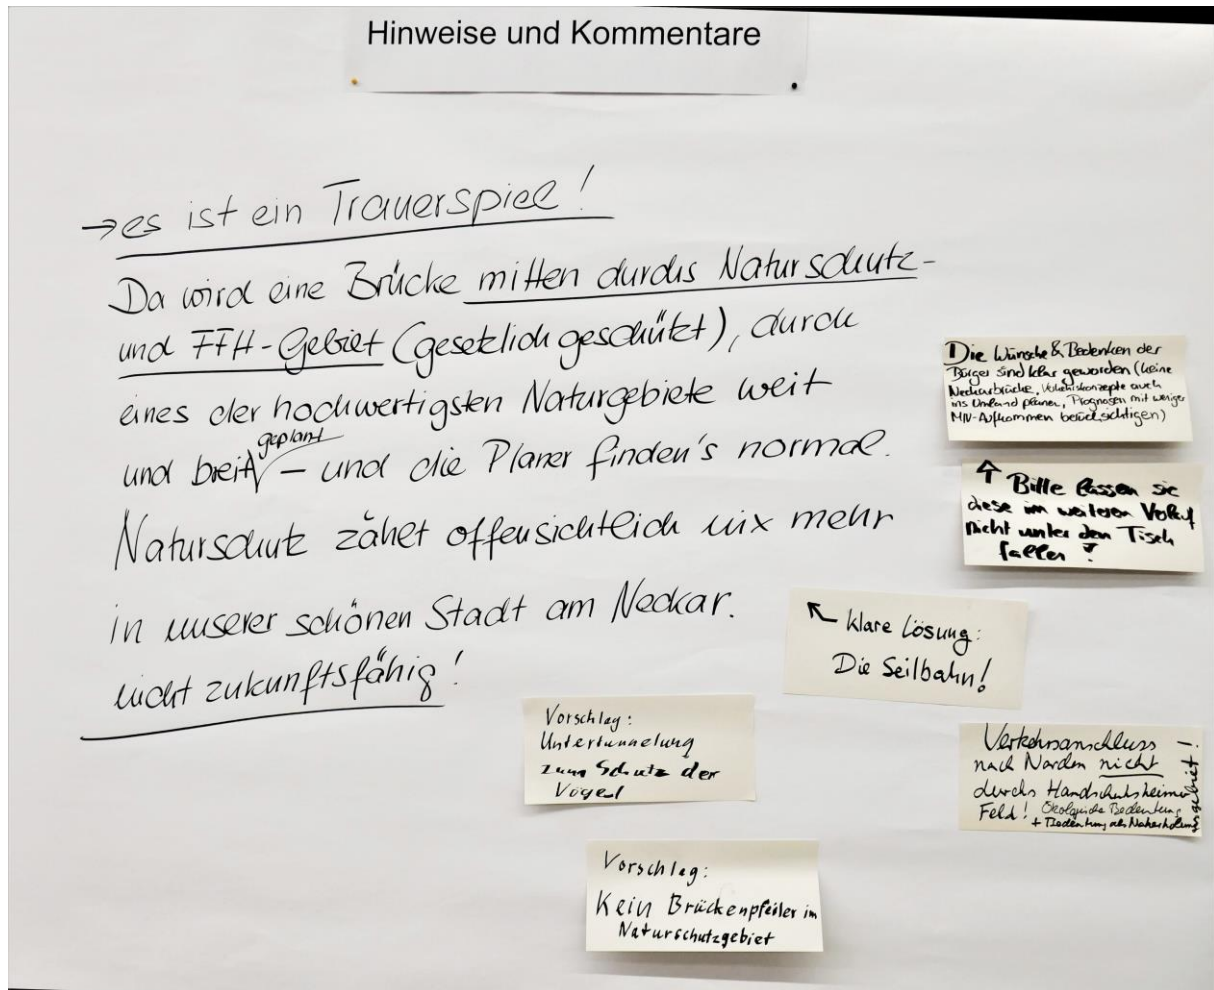 Hinweise und Kommentare
→ es ist ein Trauerspiel!
Da wird eine Brücke mitten durchs Naturschutz-
und FFH-Gebiet (gesetzlich geschützt), durch
eines der hochwertigsten Naturgebiete weit
geplant
und breit – und die Planer finden's normal.
Naturschutz zählt offensichtlich nix mehr
in unserer schönen Stadt am Neckar.
nicht zukunftsfähig!
Die Wünsche & Bedenken der
Bürger sind klar geworden (keine
Neckarbrücke, Verkehrskonzepte auch
ins Umland planen, Prognosen mit weniger
MIV-Aufkommen berücksichtigen)
↑ Bitte lassen sie
diese im weiteren Verlauf
nicht unter den Tisch
fallen!
↖ klare Lösung:
Die Seilbahn!
Vorschlag:
Untertunnelung
zum Schutz der
Vögel
Verkehrsanschluss
nach Norden nicht
durchs Handschuhsheimer
Feld! Ökologische Bedeutung
+ Bedeutung als Naherholungsgebiet!
Vorschlag:
Kein Brückenpfeiler im
Naturschutzgebiet